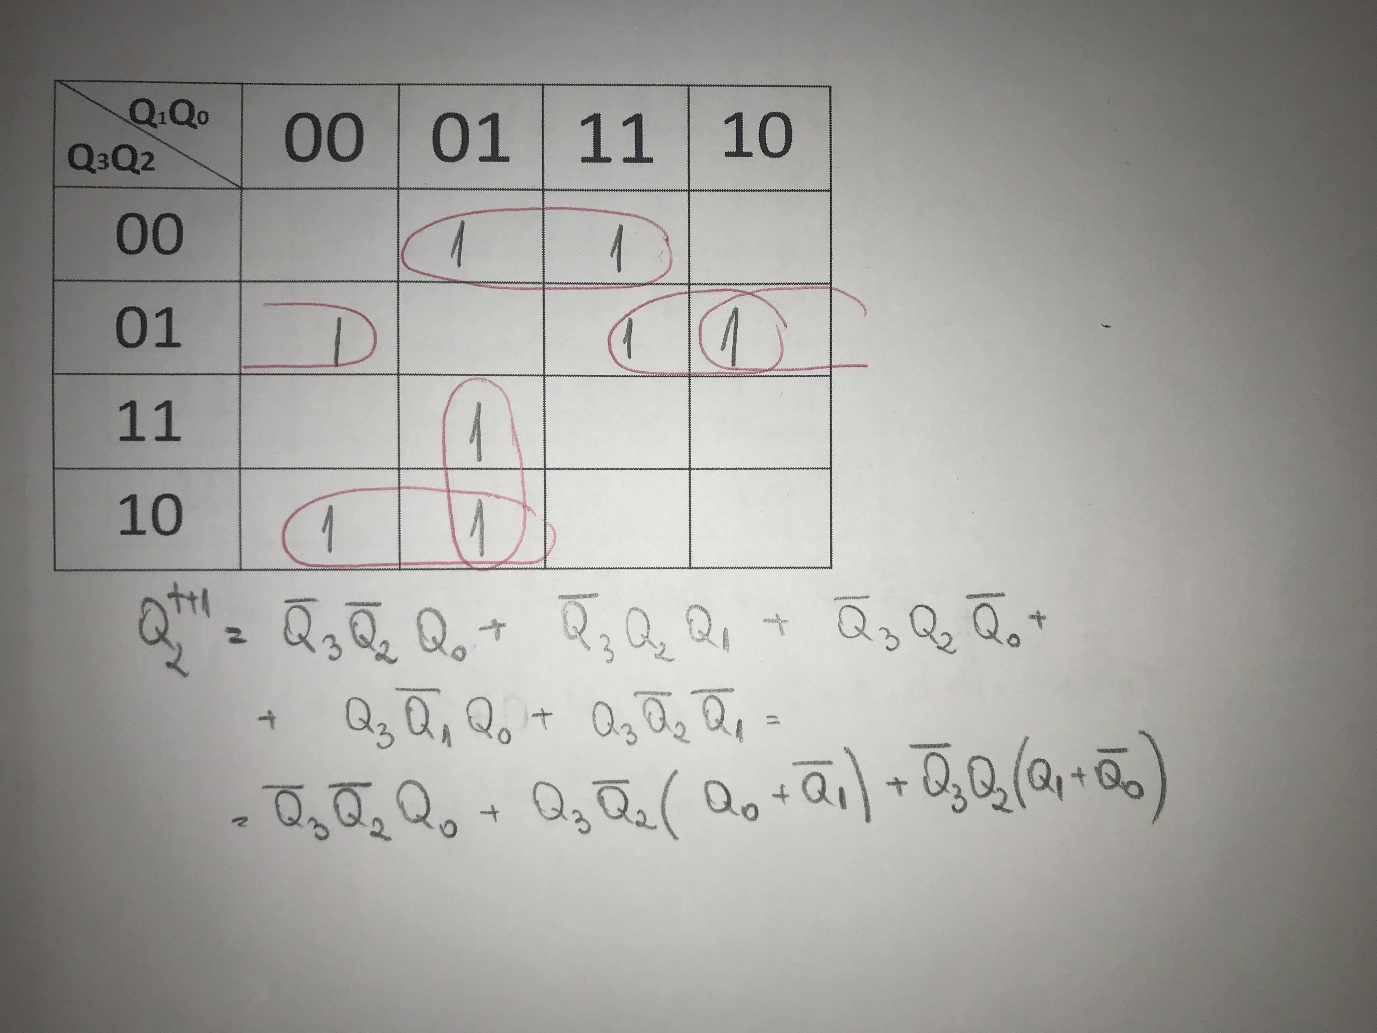 Q₁Q₀ 00 01 11 10
Q₃Q₂
00 1 1
01 1 1 1
11 1
10 1 1
Q₂ᵗ⁺¹ = Q̅₃Q̅₂Q₀ + Q̅₃Q₂Q₁ + Q̅₃Q₂Q̅₀ +
+ Q₃Q̅₁Q₀ + Q₃Q̅₂Q̅₁ =
= Q̅₃Q̅₂Q₀ + Q₃Q̅₂(Q₀ + Q̅₁) + Q̅₃Q₂(Q₁ + Q̅₀)